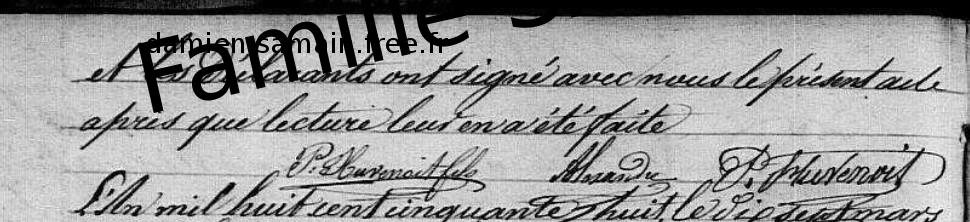 Famille S
damien.samain.free.fr
et les Déclarants ont signé avec nous le présent acte
après que lecture leur en a été faite
P. Huvenoit fils Alnandre P. Huvenoit
L'An mil huit cent cinquante huit, le dix sept mars